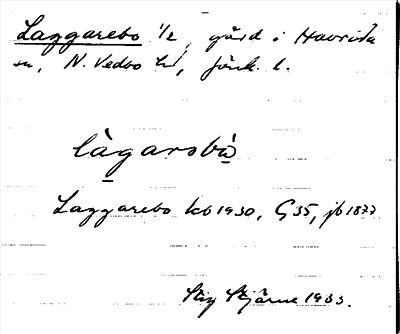 Laggarebo 1/2, gård i Haurida
sn, N. Vedbo hd, Jönk. l.
làgarsbò̤
Laggarebo kb 1930, G 35, jb 1877
Stig Stjärne 1933.